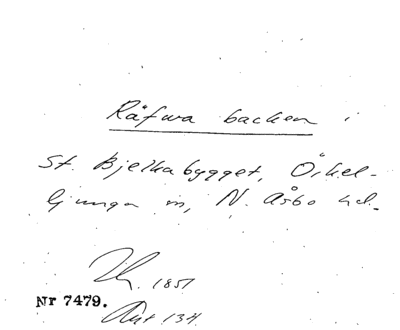 Räfwa backen i
St. Bjelkabygget, Örkel-
ljunga sn, N. Åsbo hd.
1851
Nr 7479.
Ant 134